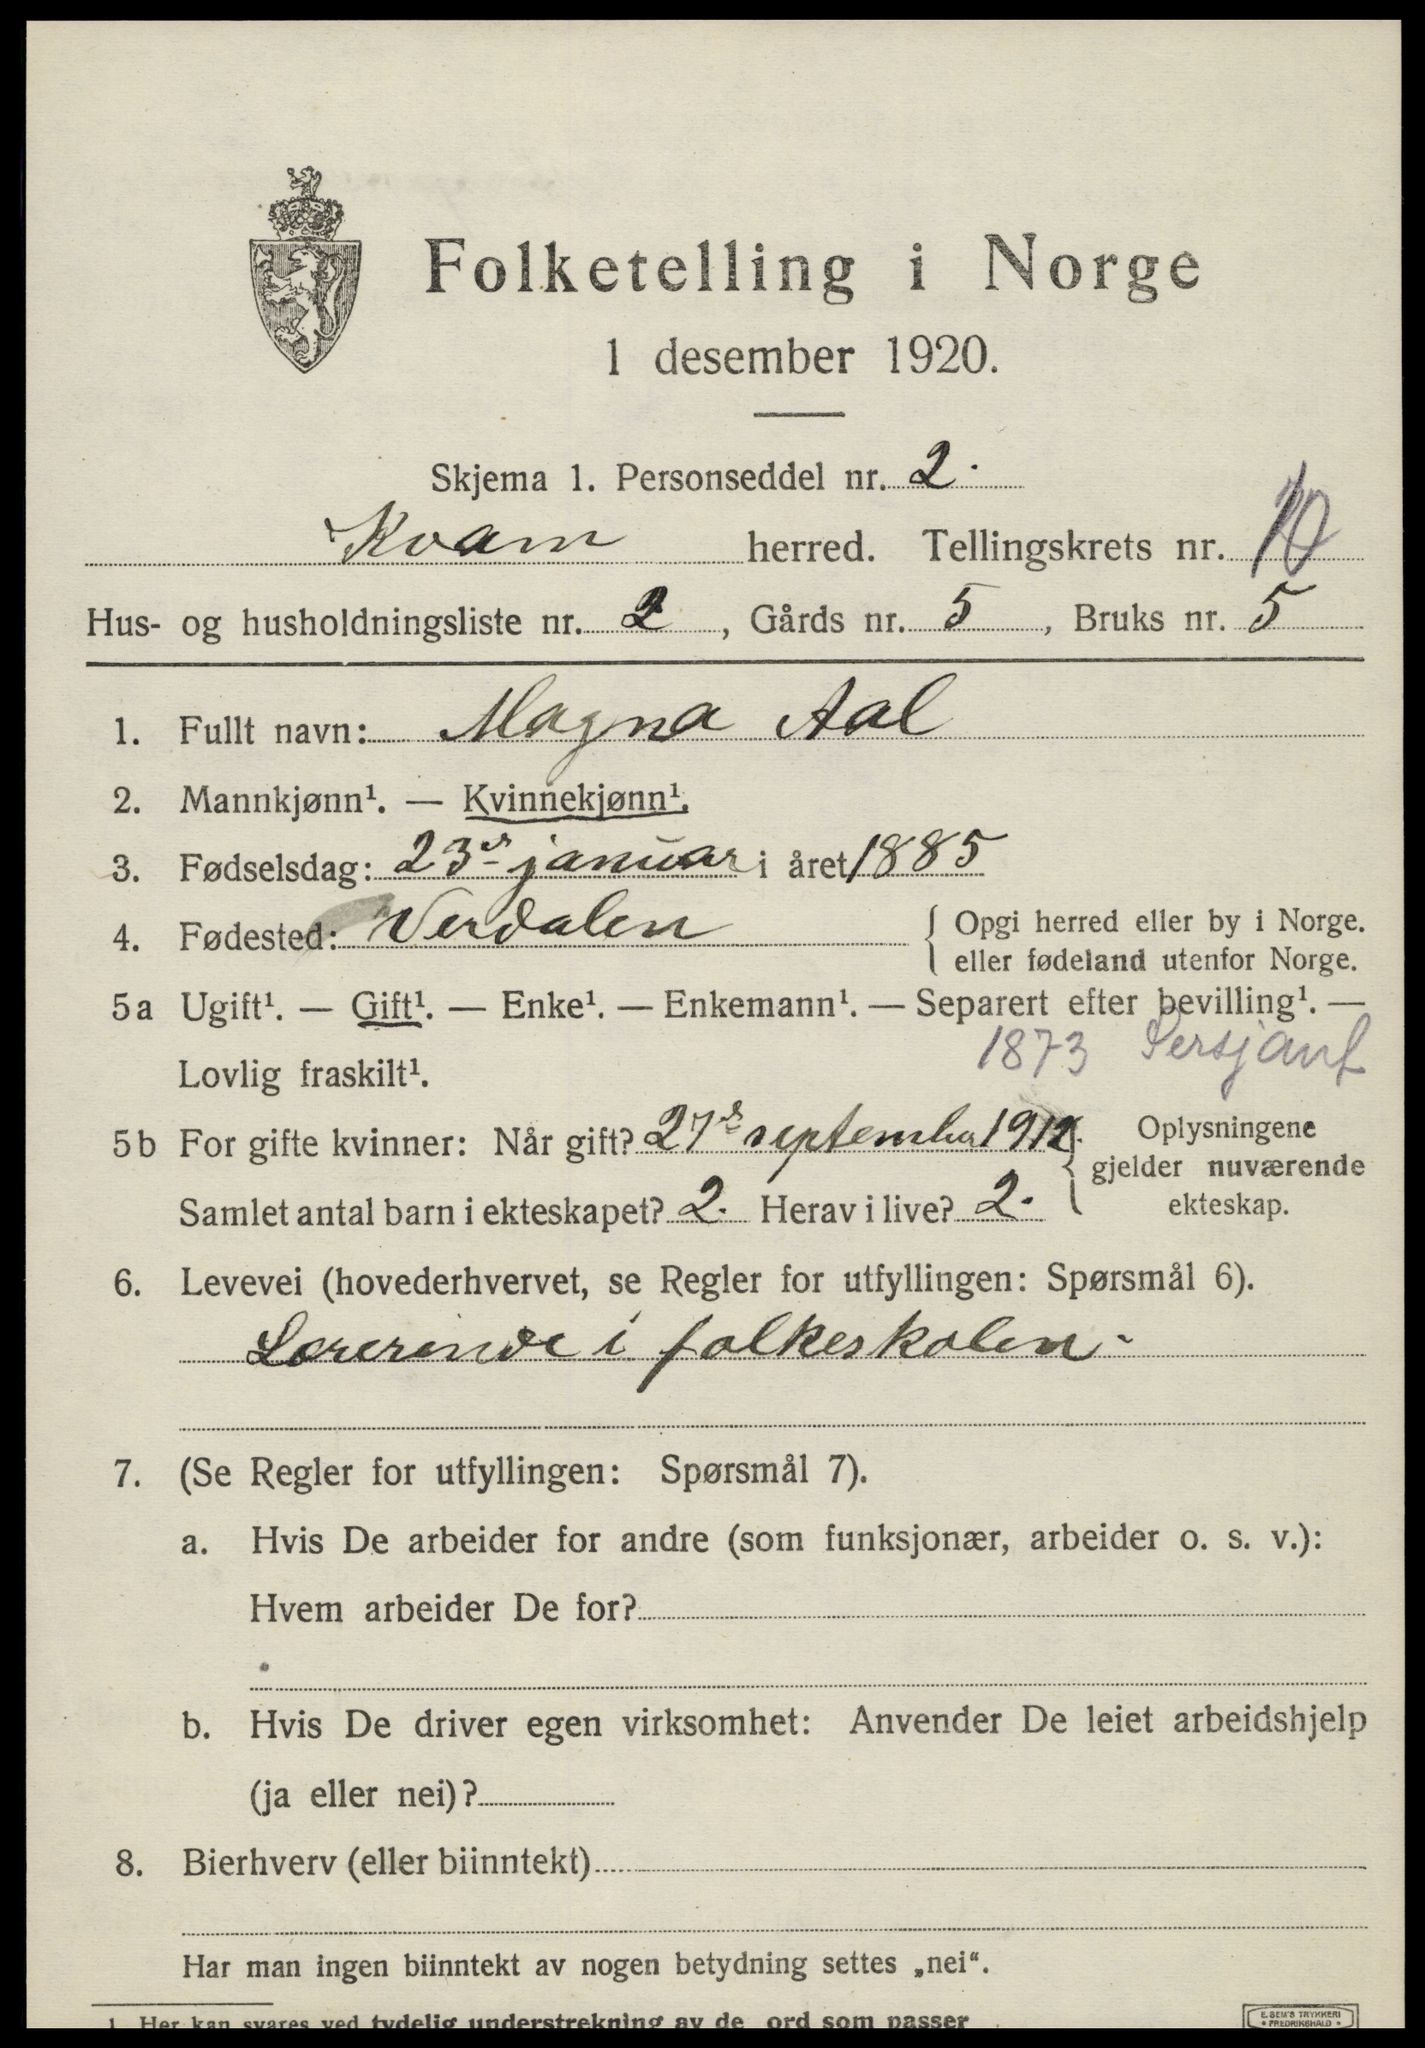 Folketelling i Norge
1 desember 1920.
Skjema 1. Personseddel nr. 2.
Kvam herred. Tellingskrets nr. 10
Hus- og husholdningsliste nr. 2, Gårds nr. 5, Bruks nr. 5
1. Fullt navn: Magna Aal
2. Mannkjønn¹. — Kvinnekjønn¹.
3. Fødselsdag: 23de januar i året 1885
4. Fødested: Verdalen { Opgi herred eller by i Norge.
eller fødeland utenfor Norge.
5a Ugift¹. — Gift¹. — Enke¹. — Enkemann¹. — Separert efter bevilling¹. —
Lovlig fraskilt¹. 1873 Sersjant
5b For gifte kvinner: Når gift? 27de september 1912. { Oplysningene
gjelder nuværende
Samlet antal barn i ekteskapet? 2. Herav i live? 2. ekteskap.
6. Levevei (hovederhvervet, se Regler for utfyllingen: Spørsmål 6).
Lærerinde i folkeskolen -
7. (Se Regler for utfyllingen: Spørsmål 7).
a. Hvis De arbeider for andre (som funksjonær, arbeider o. s. v.):
Hvem arbeider De for?
b. Hvis De driver egen virksomhet: Anvender De leiet arbeidshjelp
(ja eller nei)?
8. Bierhverv (eller biinntekt)
Har man ingen biinntekt av nogen betydning settes „nei“.
1 Her kan svares ved tydelig understrekning av de ord som passer
E. SEM'S TRYKKERI
• FREDRIKSHALD •